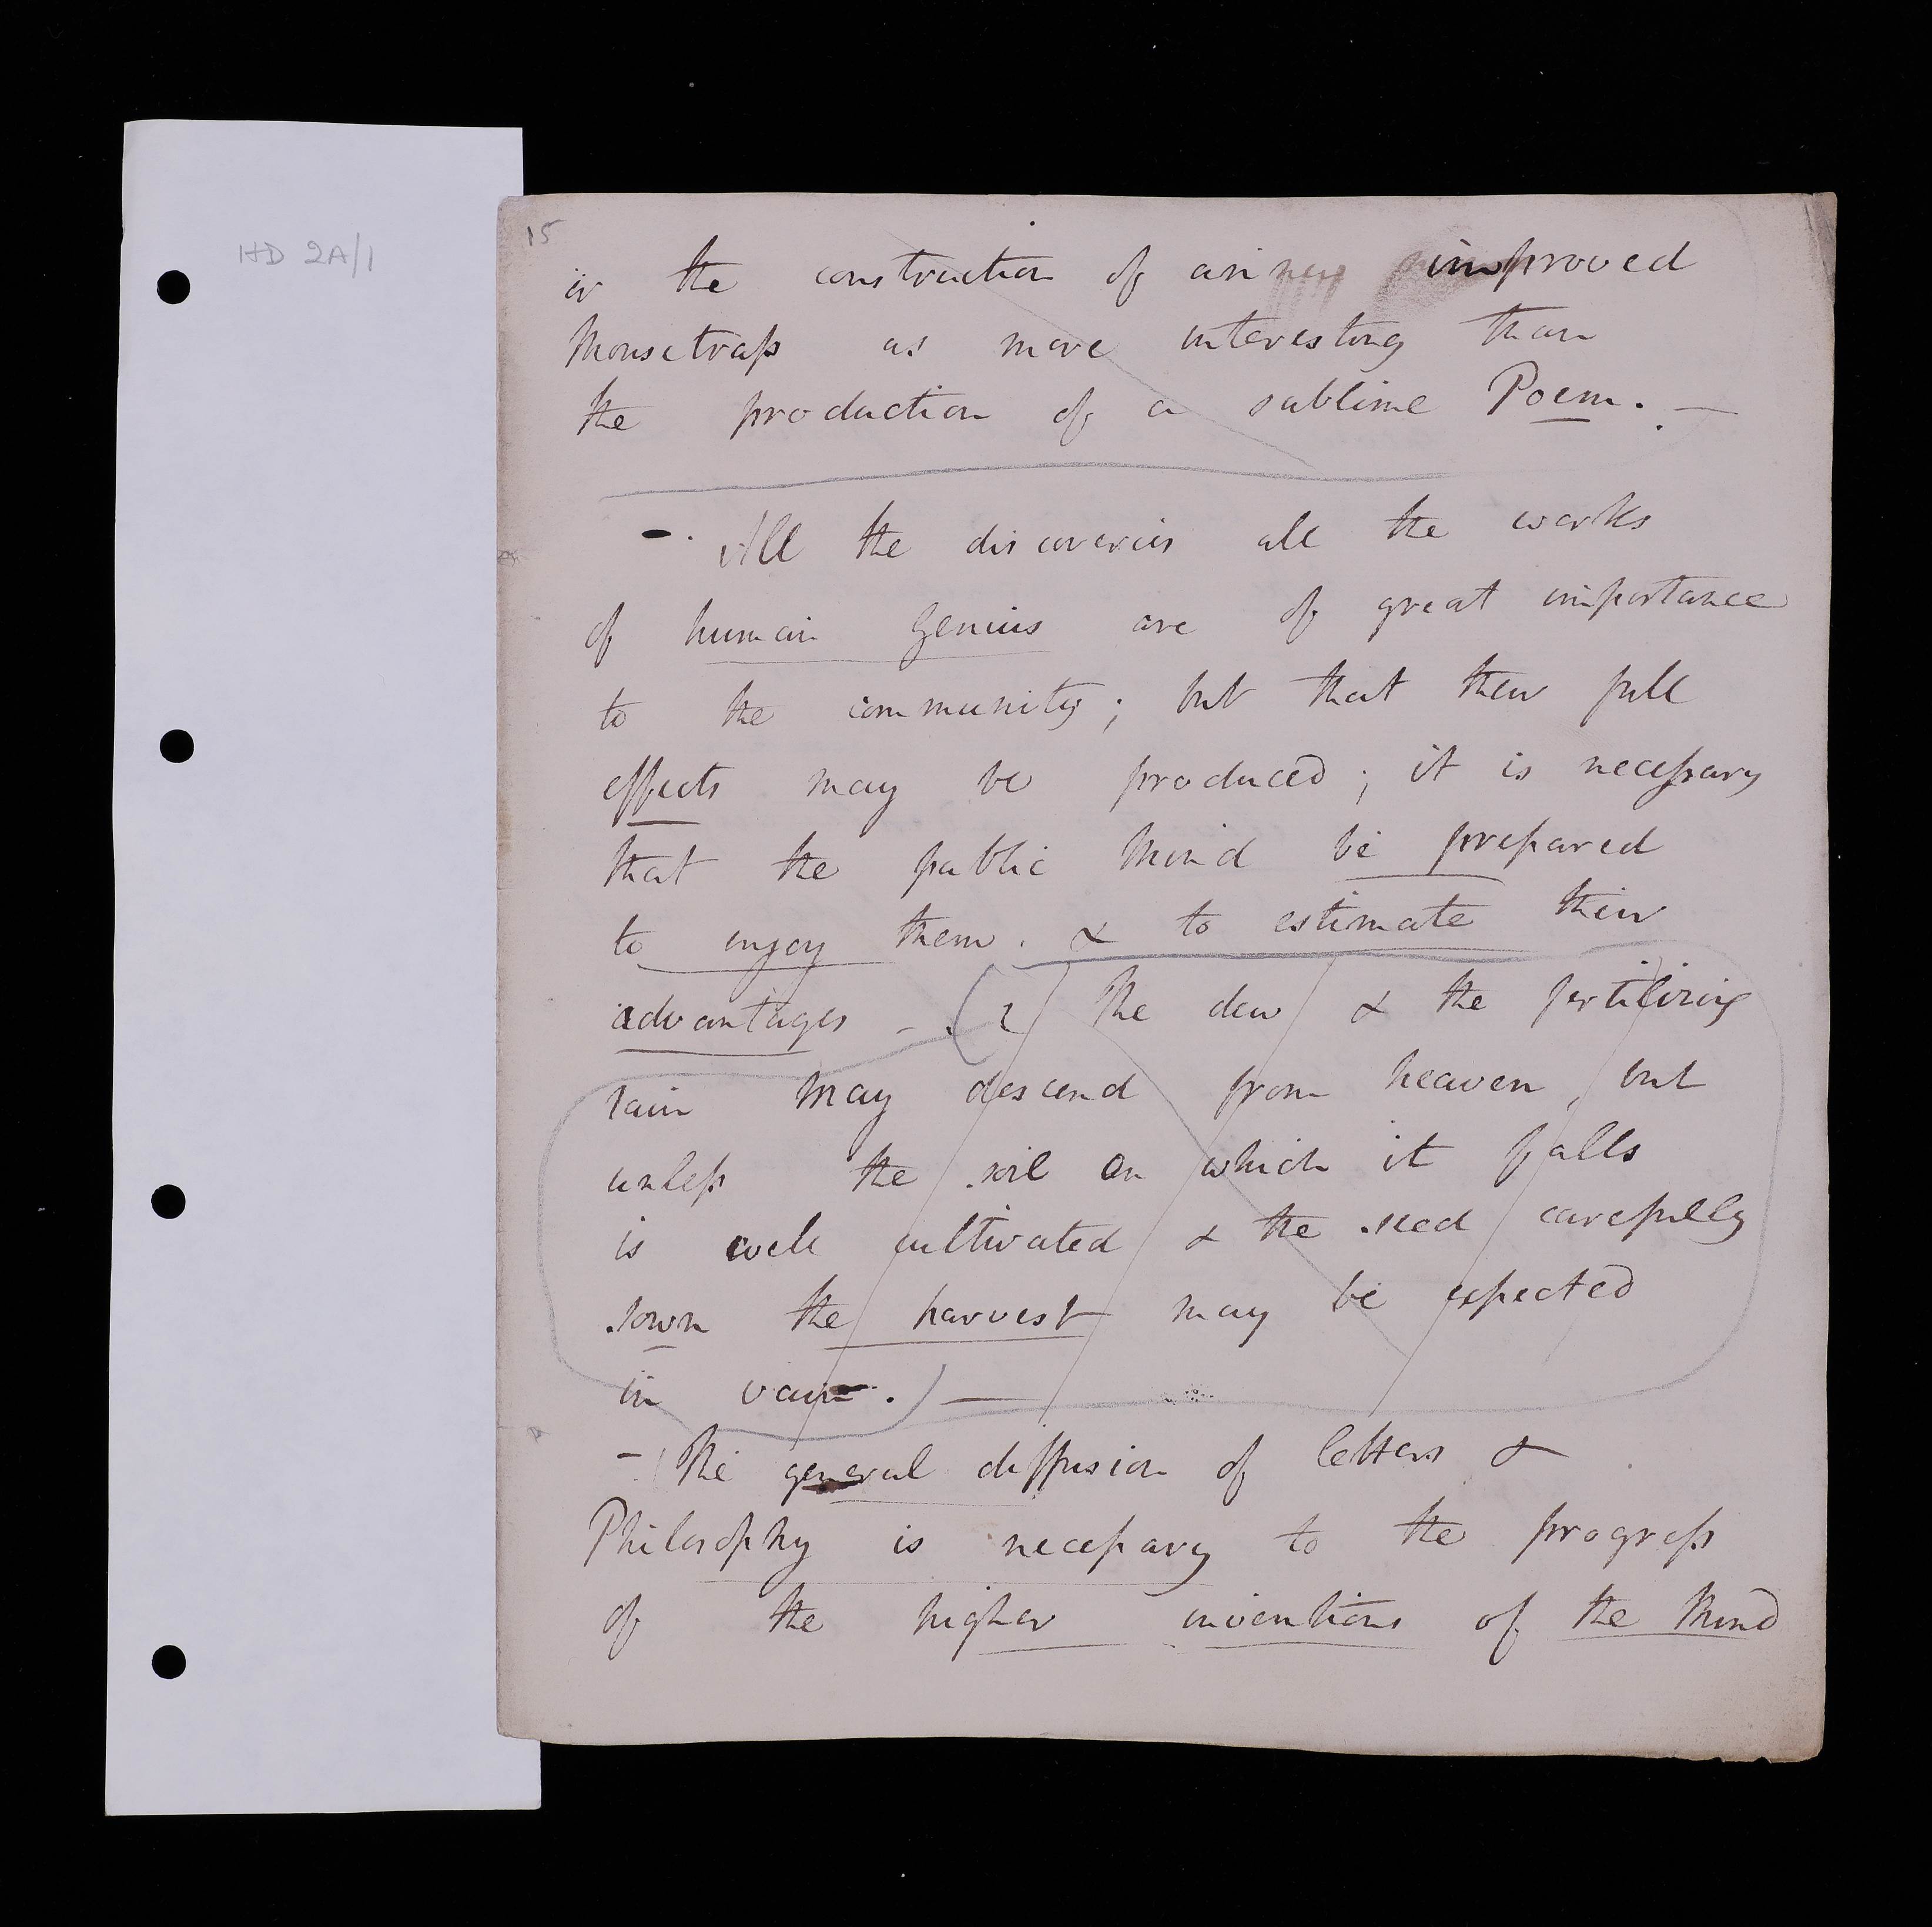 HD 2A/1
15
or the construction of an improved
Mousetrap as more interesting than
the production of a sublime Poem. —
- All the discoveries all the works
of human genius are of great importance
to the community; but that their full
effects may be produced; it is necessary
that the public Mind be prepared
to enjoy them. & to estimate their
advantages - ( The dew & the fertilizing
rain may descend from heaven, but
unless the soil on which it falls
is well cultivated & the seed carefully
sown the harvest may be expected
in vain.) —
- The general diffusion of letters &
Philosophy is necessary to the progress
of the higher inventions of the Mind